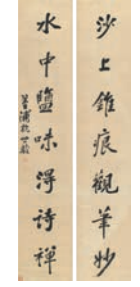 沙上錐痕觀筆妙
水中鹽味得詩禪